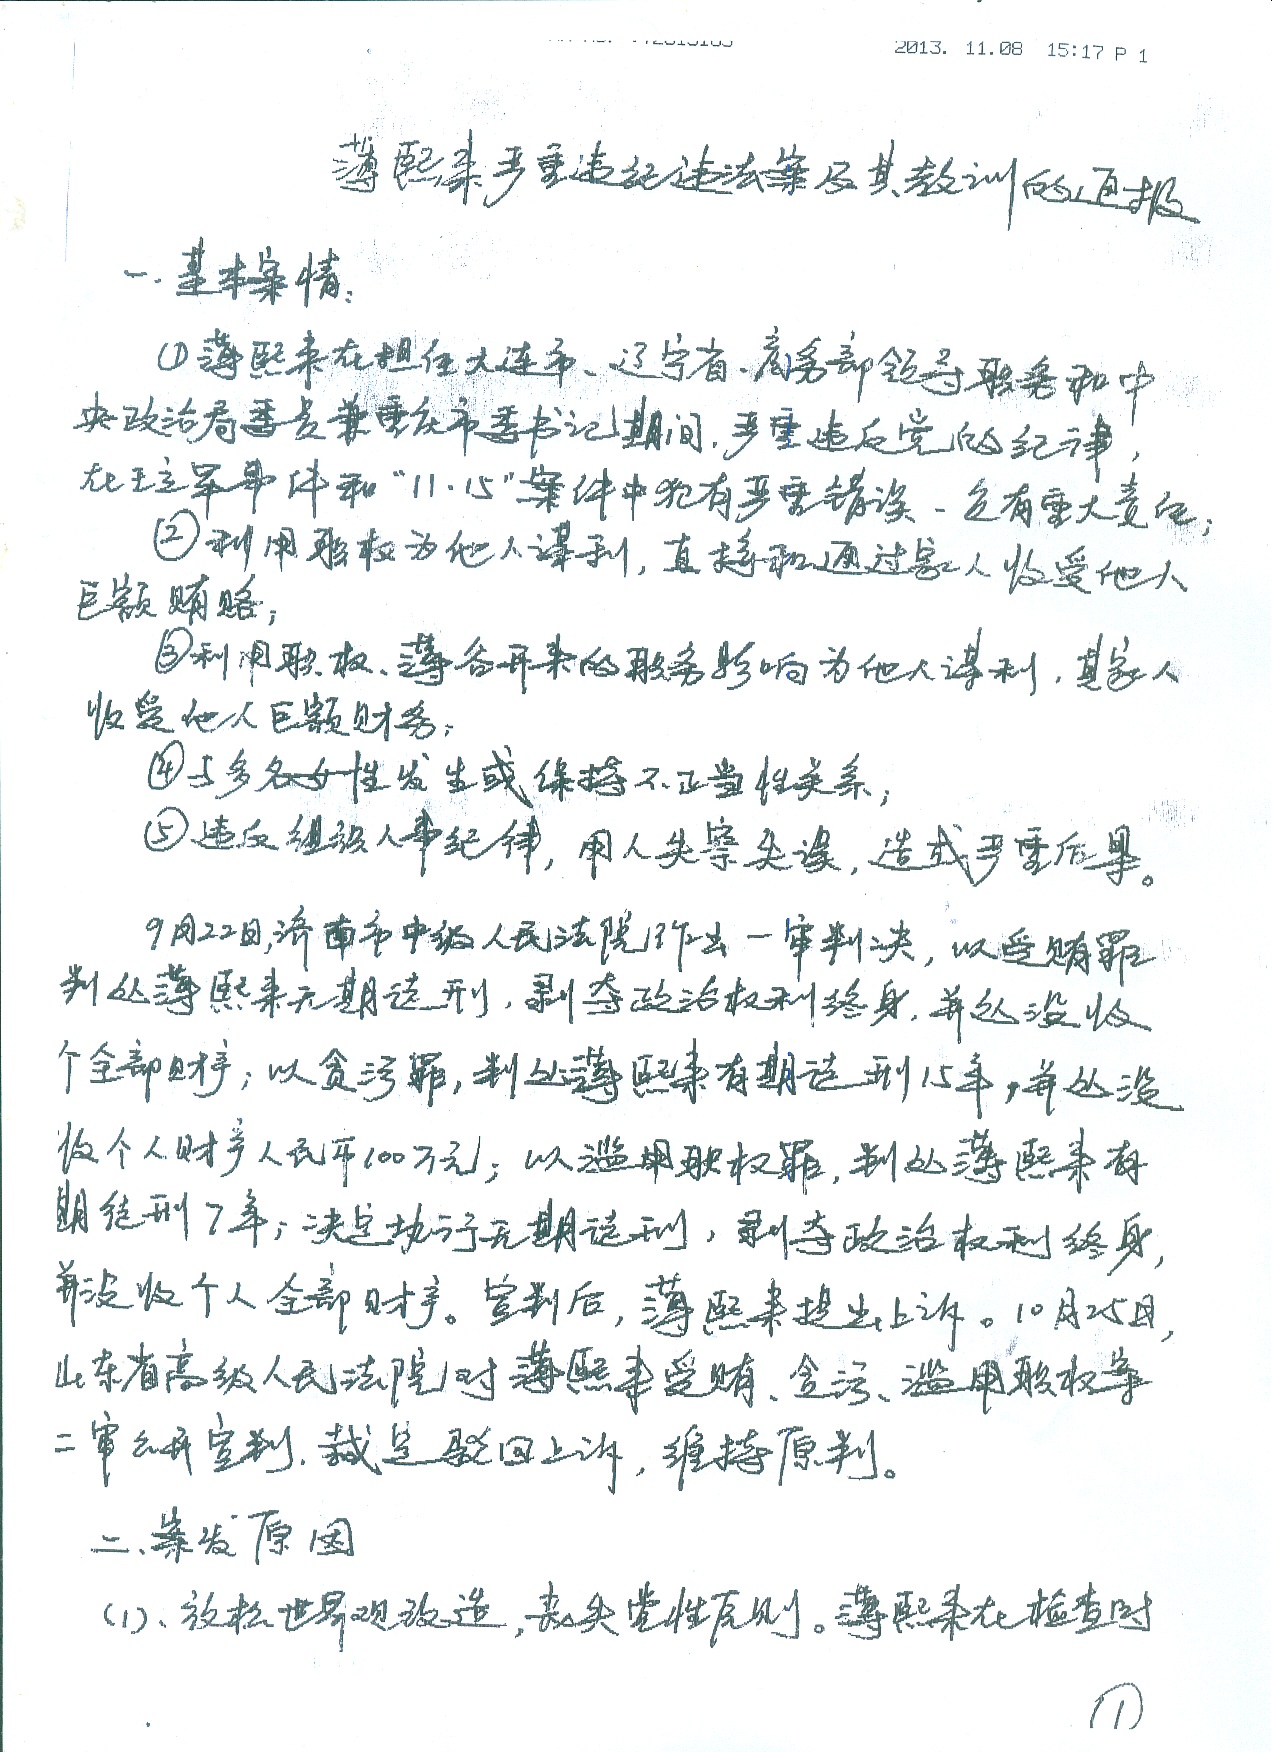 2013. 11.08 15:17 P 1
薄熙来严重违纪违法案及其教训的通报
一. 基本案情:
①薄熙来在担任大连市、辽宁省.商务部领导职务和中
央政治局委员兼重庆市委书记期间,严重违反党的纪律,
在王立军事件和“11.15”案件中犯有严重错误、负有重大责任;
②利用职权为他人谋利,直接和通过家人收受他人
巨额贿赂;
③利用职权、薄谷开来的职务影响为他人谋利,其家人
收受他人巨额财务;
④与多名女性发生或保持不正当性关系;
⑤违反组织人事纪律,用人失察失误,造成严重后果。
9月22日,济南市中级人民法院作出一审判决,以受贿罪
判处薄熙来无期徒刑,剥夺政治权利终身,并处没收
个全部财产;以贪污罪,判处薄熙来有期徒刑15年,并处没
收个人财产人民币100万元;以滥用职权罪,判处薄熙来有
期徒刑7年;决定执行无期徒刑,剥夺政治权利终身,
并没收个人全部财产。宣判后,薄熙来提出上诉。10月25日,
山东省高级人民法院对薄熙来受贿、贪污、滥用职权案
二审公开宣判,裁定驳回上诉,维持原判。
二、案发原因
(1)、放松世界观改造,丧失党性原则。薄熙来在检查时
①